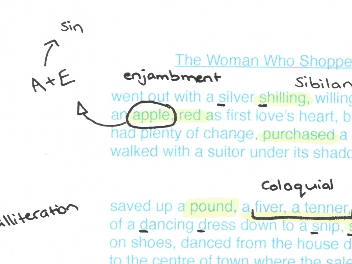 Sin
The Woman Who Shoppe
A+E
enjambment
Sibilan
went out with a silver shilling, willing
an apple red as first love's heart, b
had plenty of change, purchased a
walked with a suitor under its shado
Coloquial
lliteration
saved up a pound, a fiver, a tenner,
of a dancing dress down to a snip, s
on shoes, danced from the house d
to the centre of town where the sale